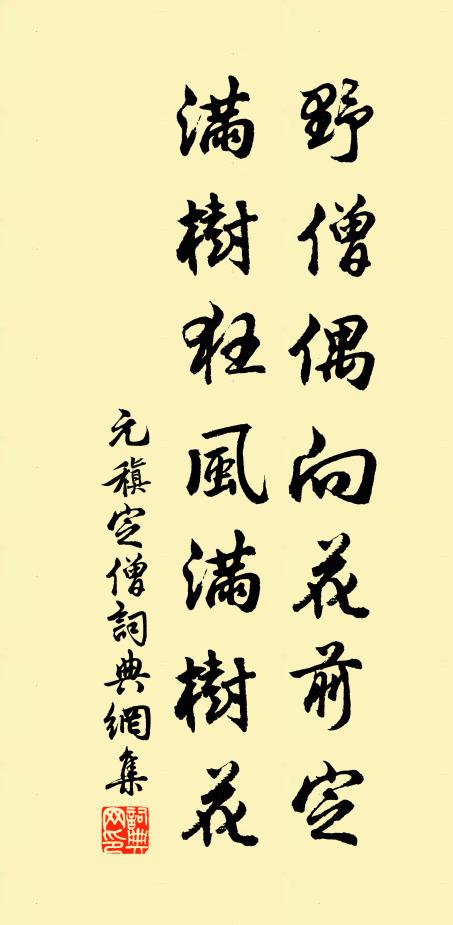 野僧偶向花前定
滿樹狂風滿樹花
元稹定僧詞典網集
詞典網印